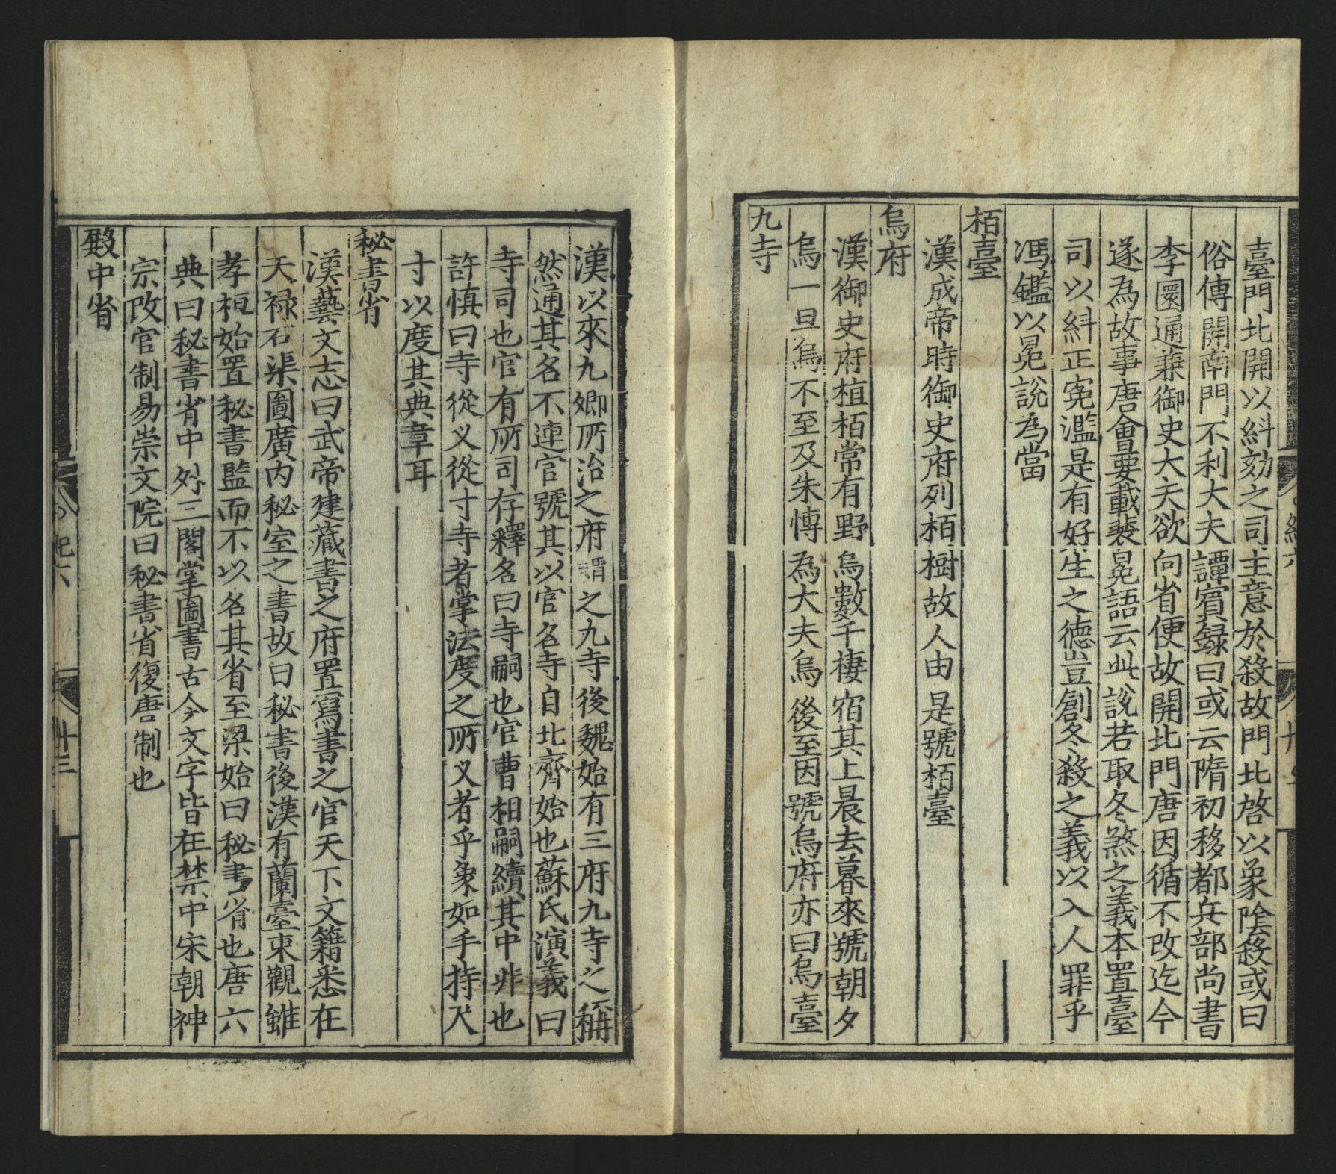 臺門北開以糾劾之司主意於殺故門北啓以象陰殺或曰
俗傳開南門不利大夫譚賓録曰或云隋初移都兵部尚書
李圎通兼御史大夫欲向省便故開北門唐因循不改迄今
遂為故事唐會要載裴冕語云此說若取冬煞之義本置臺
司以糾正寃濫是有好生之德豈創冬殺之義以入人罪乎
馮鑑以冕說為當
栢臺
漢成帝時御史府列栢樹故人由是號栢臺
烏府
漢御史府植栢常有野烏數千棲宿其上晨去暮來號朝夕
烏一旦烏不至及朱愽為大夫烏後至因號烏府亦曰烏臺
九寺
漢以來九卿所治之府謂之九寺後魏始有三府九寺之稱
然通其名不連官號其以官名寺自北齊始也蘇氏演義曰
寺司也官有所司存釋名曰寺嗣也官曹相嗣續其中非也
許慎曰寺從义從寸寺者掌法度之所义者乎象如手持尺
寸以度其典章耳
秘書省
漢藝文志曰武帝建藏書之府置寫書之官天下文籍悉在
天禄石渠圖廣内秘室之書故曰秘書後漢有蘭臺東觀雖
孝桓始置秘書監而不以名其省至梁始曰秘書省也唐六
典曰秘書省中外三閣掌圖書古今文字皆在禁中宋朝神
宗改官制易崇文院曰秘書省復唐制也
殿中省
紀六
廿三